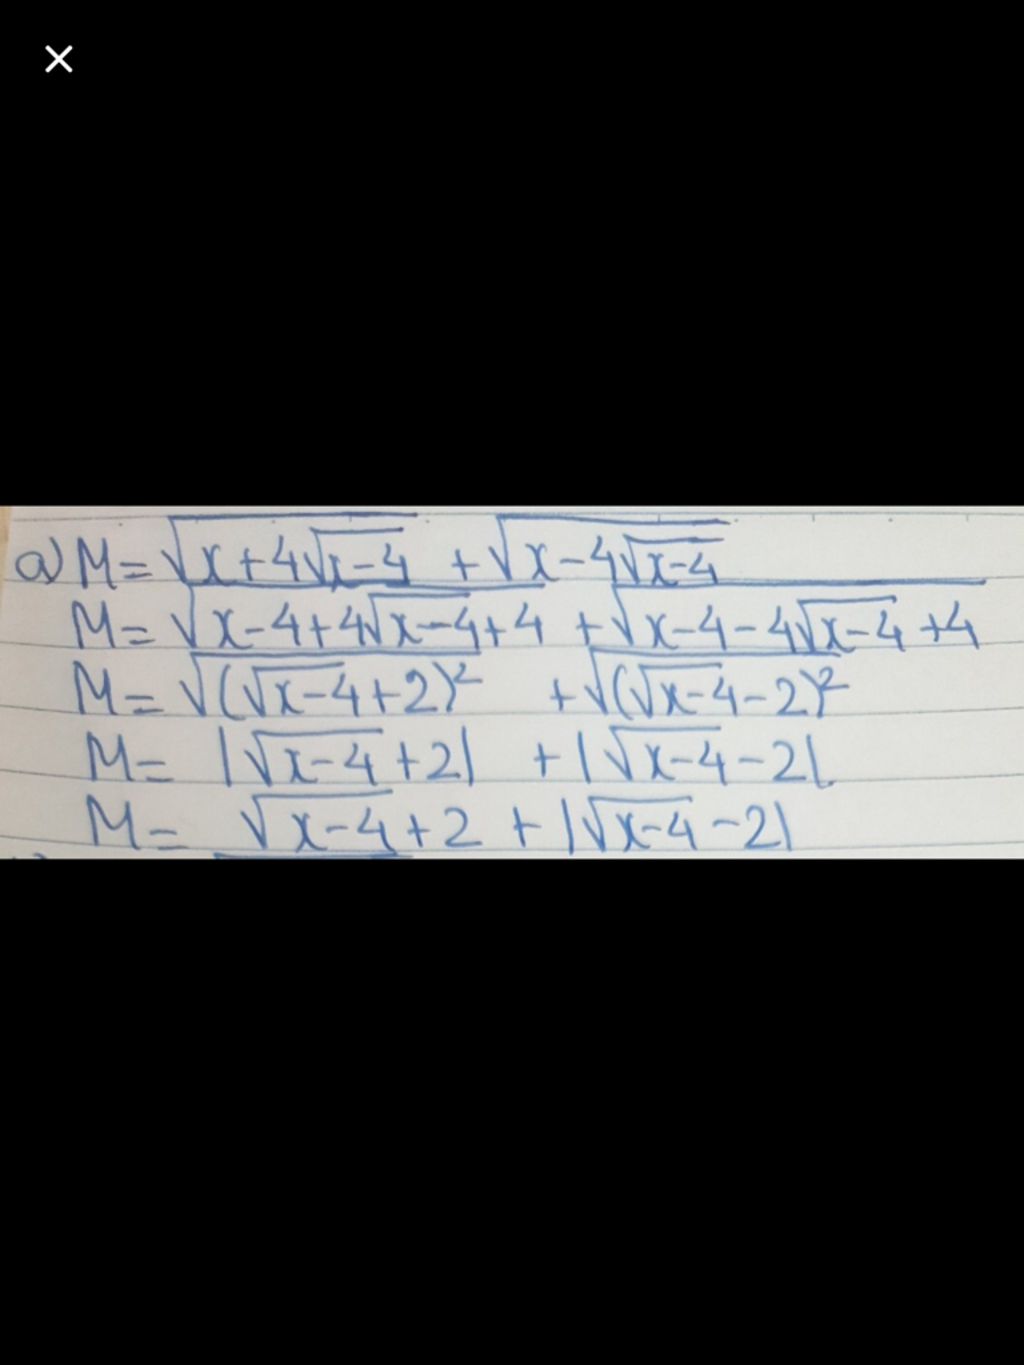 a) M = √(x+4√(x-4)) + √(x-4√(x-4))
M = √(x-4+4√(x-4)+4) + √(x-4-4√(x-4)+4)
M = √((√(x-4)+2)²) + √((√(x-4)-2)²)
M = |√(x-4)+2| + |√(x-4)-2|
M = √(x-4)+2 + |√(x-4)-2|